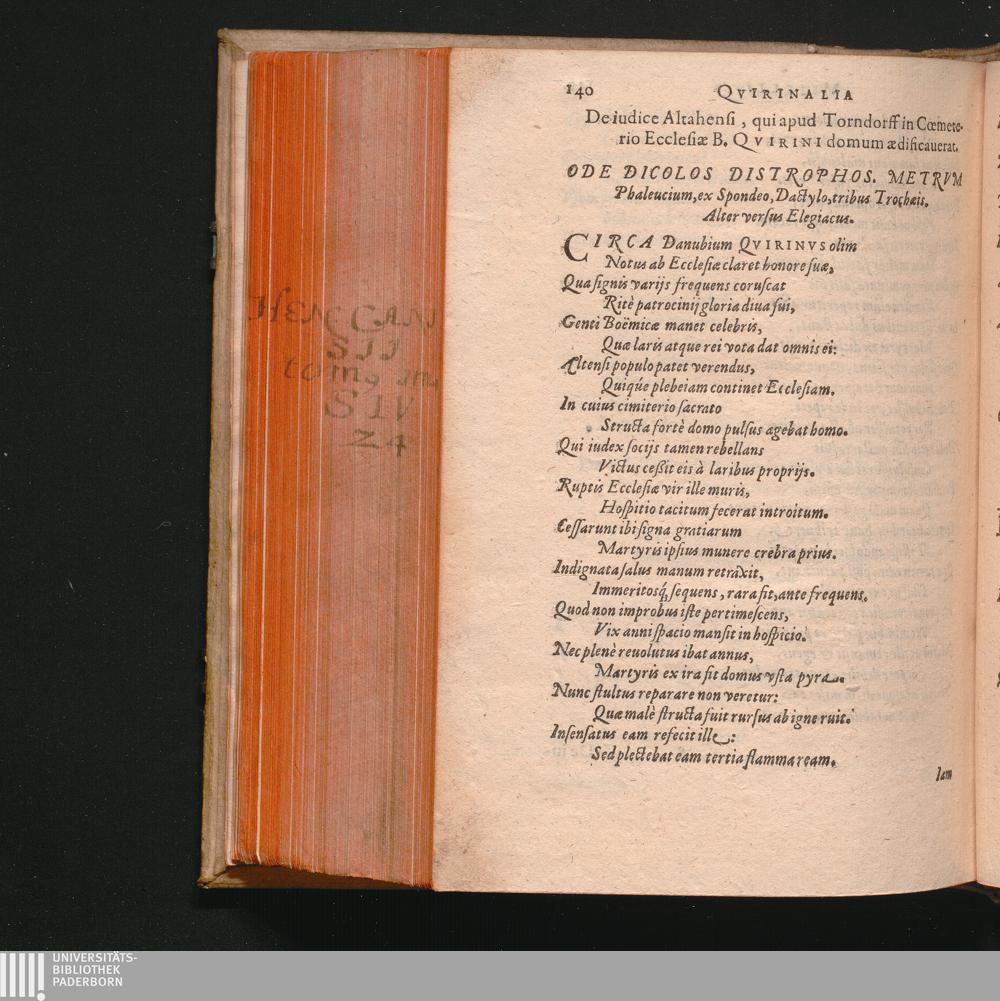 140 QVIRINALIA
De iudice Altahensi, qui apud Torndorff in Cœmete-
rio Ecclesiæ B. QVIRINI domum ædificauerat.
ODE DICOLOS DISTROPHOS. METRVM
Phaleucium, ex Spondeo, Dactylo, tribus Trochæis.
Alter versus Elegiacus.
CIRCA Danubium QVIRINVS olim
Notus ab Ecclesiæ claret honore suæ,
Qua signis varijs frequens coruscat
Ritè patrocinij gloria diua sui,
Genti Boëmicæ manet celebris,
Quæ laris atque rei vota dat omnis ei:
Altensi populo patet verendus,
Quiqúe plebeiam continet Ecclesiam.
In cuius cimiterio sacrato
Structa fortè domo pulsus agebat homo.
Qui iudex socijs tamen rebellans
Victus ceßit eis à laribus proprijs.
Ruptis Ecclesiæ vir ille muris,
Hospitio tacitum fecerat introitum.
Cessarunt ibi signa gratiarum
Martyris ipsius munere crebra prius.
Indignata salus manum retraxit,
Immeritosq́; sequens, rara fit, ante frequens.
Quod non improbus iste pertimescens,
Vix anni spacio mansit in hospicio.
Nec plenè reuolutus ibat annus,
Martyris ex ira fit domus vsta pyra.
Nunc stultus reparare non veretur:
Quæ malè structa fuit rursus ab igne ruit.
Insensatus eam refecit ille:
Sed plectebat eam tertia flamma ream.
Iam
SII
24
UNIVERSITÄTS-
BIBLIOTHEK
PADERBORN